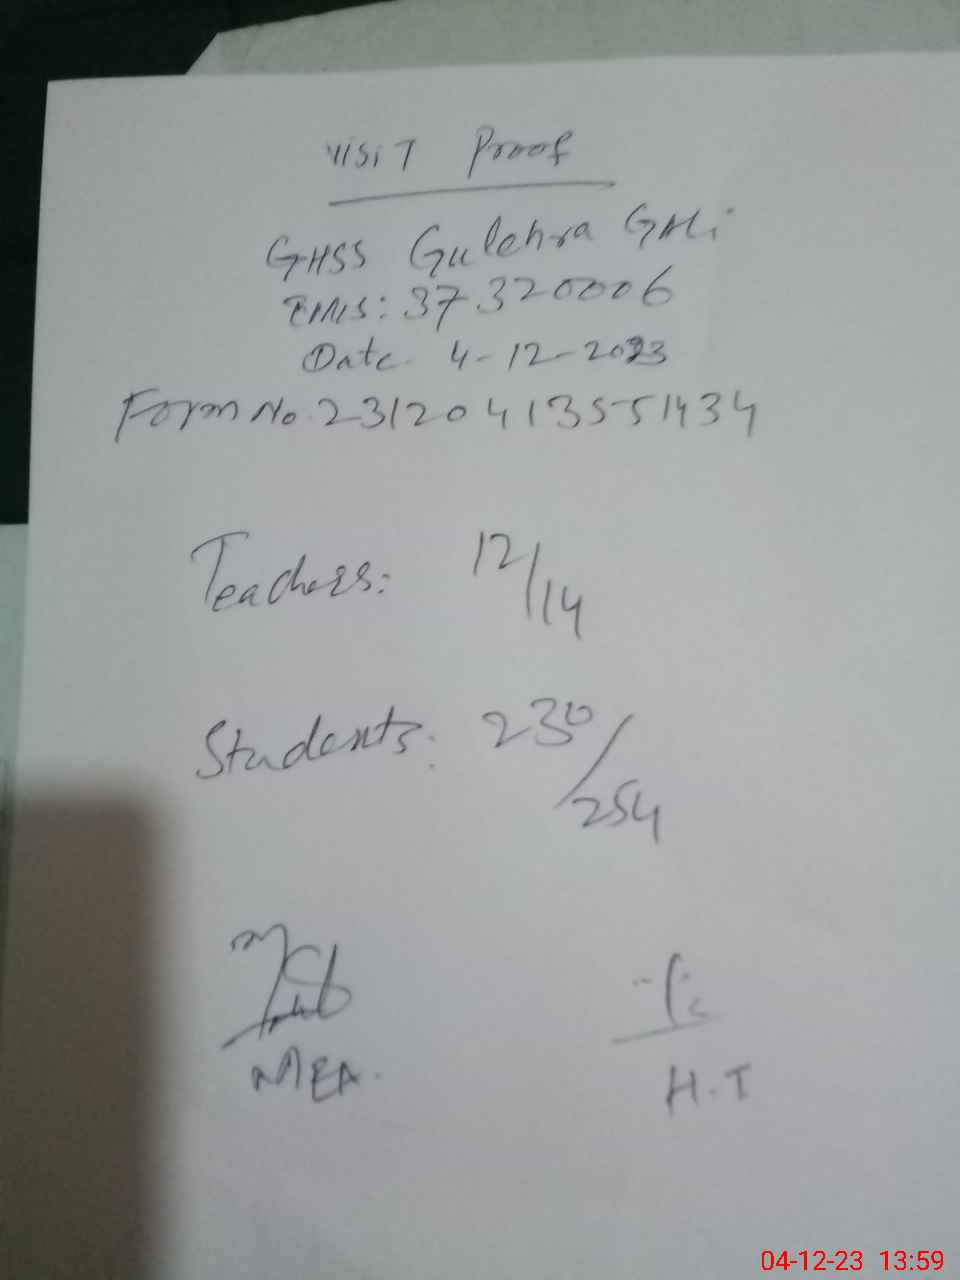 VISIT Proof
GHSS Gulehra GALi
EMIS: 37320006
Date. 4-12-2023
Form No. 23120413551434
Teachers: 12/14
Students: 230/254
MEA.
H.T
04-12-23 13:59